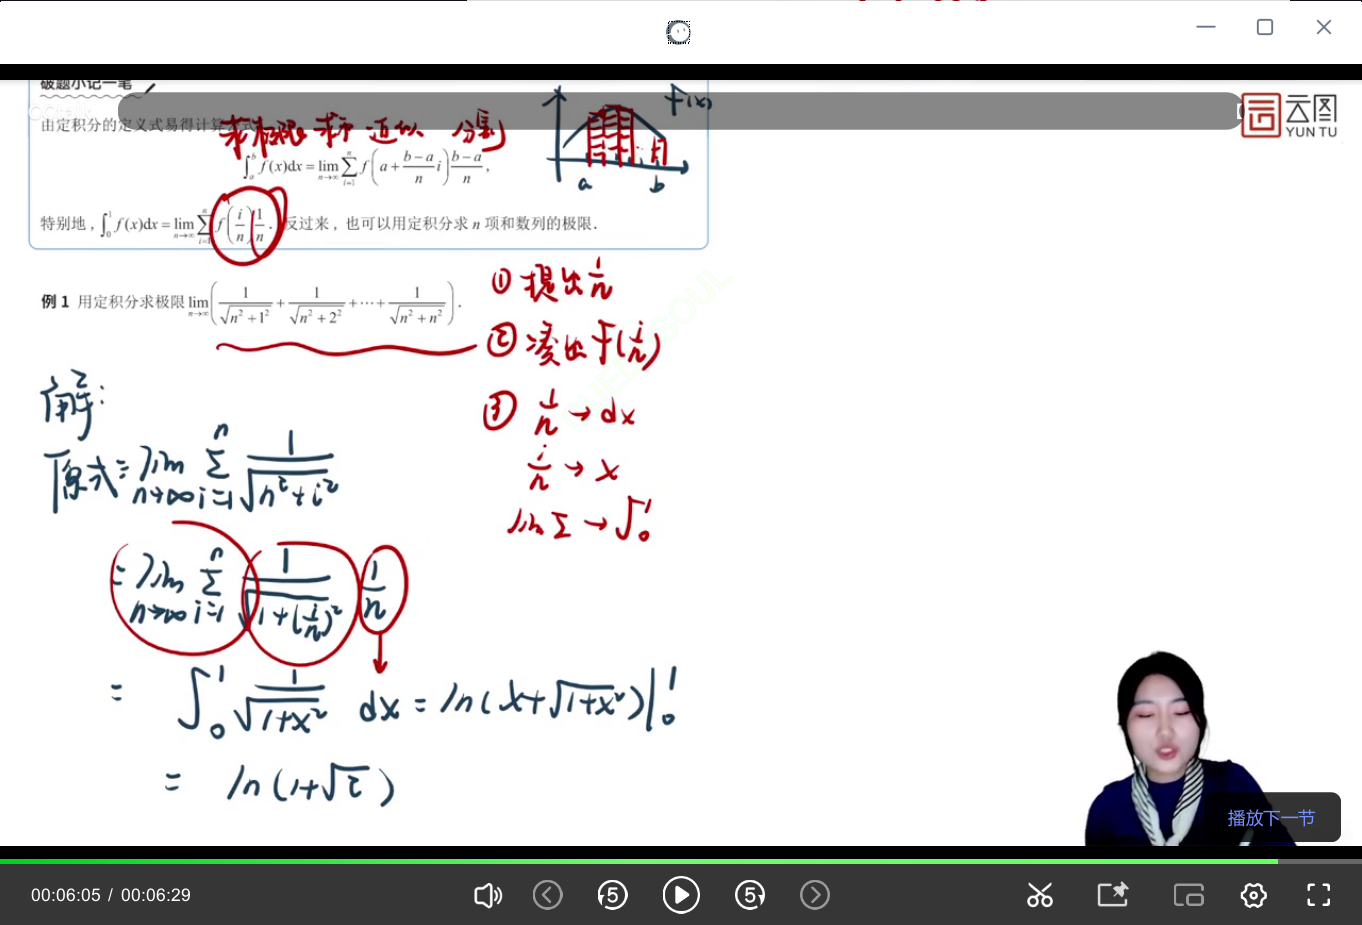 破题小记一笔
由定积分的定义式易得计算
求极限 求和 近似 分割
f(x)
云图
YUN TU
∫_a^b f(x)dx = lim_{n→∞} ∑_{i=1}^n f(a + (b-a)/n i) (b-a)/n ,
a b
特别地，∫_0^1 f(x)dx = lim_{n→∞} ∑_{i=1}^n f(i/n) 1/n . 反过来，也可以用定积分求 n 项和数列的极限．
① 提出 1/n
例 1 用定积分求极限 lim_{n→∞} ( 1/√(n²+1²) + 1/√(n²+2²) + ⋯ + 1/√(n²+n²) ) .
② 凑出 f(i/n)
③ 1/n → dx
i/n → x
lim ∑ → ∫_0^1
解：
原式 = lim_{n→∞} ∑_{i=1}^n 1/√(n²+i²)
= lim_{n→∞} ∑_{i=1}^n 1/√(1+(i/n)²) 1/n
= ∫_0^1 1/√(1+x²) dx = ln(x+√(1+x²))|_0^1
= ln(1+√2)
播放下一节
00:06:05 / 00:06:29
5 5